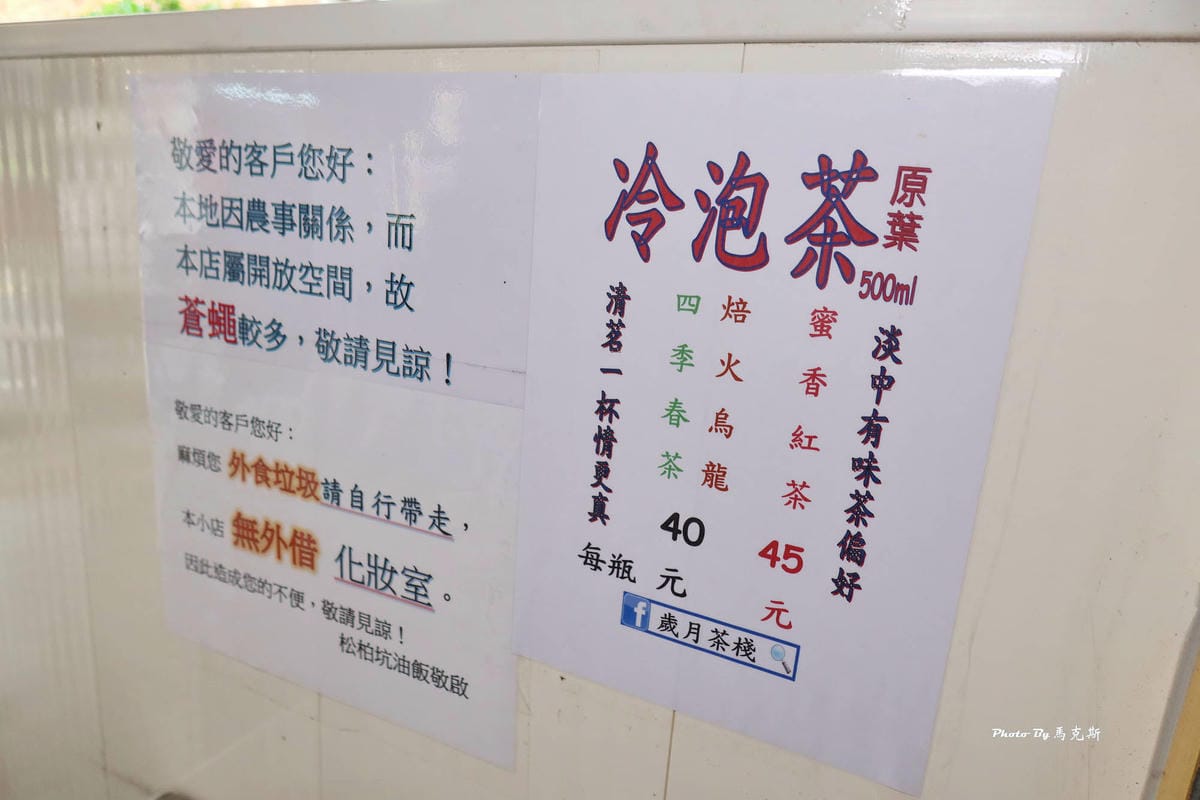 敬愛的客戶您好：
本地因農事關係，而
本店屬開放空間，故
蒼蠅較多，敬請見諒！
敬愛的客戶您好：
麻煩您 外食垃圾請自行帶走，
本小店 無外借 化妝室。
因此造成您的不便，敬請見諒！
松柏坑油飯敬啟
冷泡茶
原葉
500ml
淡中有味茶偏好
蜜香紅茶
45元
焙火烏龍
四季春茶
40元
每瓶
清茗一杯情更真
f 歲月茶棧
Photo By 馬克斯